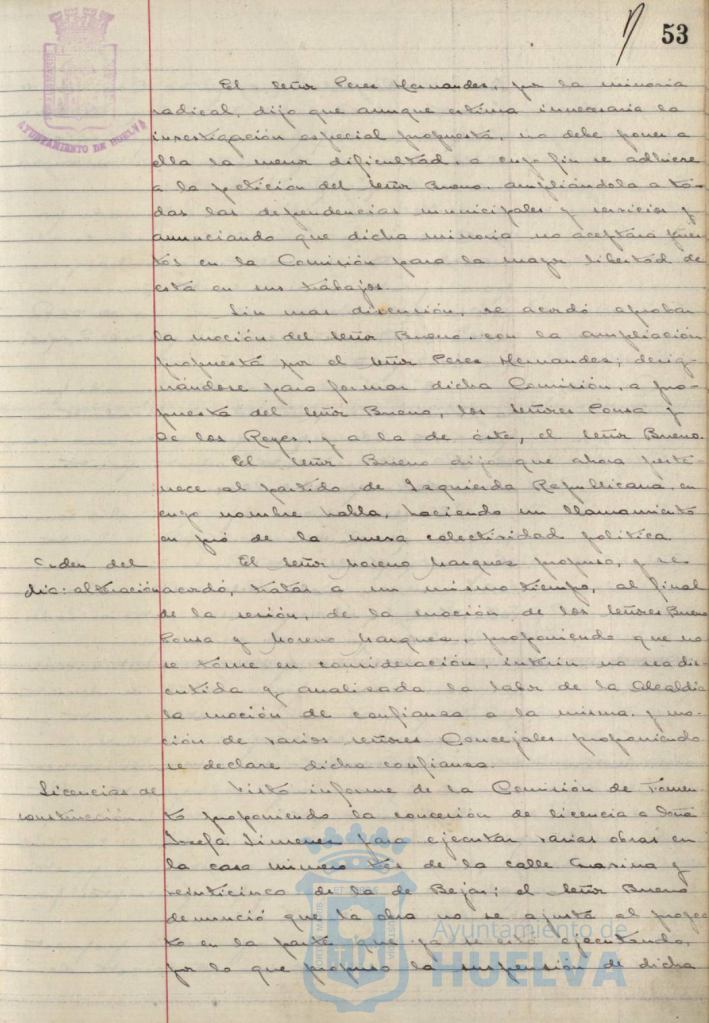 53
AYUNTAMIENTO DE HUELVA
El Señor Peres Hernandes, por la minoria
radical, dijo que aunque estima innecesaria la
investigación especial propuesta, no debe poner a
ella la menor dificultad, a cuyo fin se adhiere
a la petición del Señor Bueno, ampliándola a to-
das las dependencias municipales y servicios y
anunciando que dicha minoria no aceptará pues-
tos en la Comisión para la mayor libertad de
esta en sus trabajos.
Sin mas discusión, se acordó aprobar
la moción del Señor Bueno, con la ampliación
propuesta por el Señor Peres Hernandes; desig-
nándose para formar dicha Comisión, a pro-
puesta del Señor Bueno, los Señores Ponsa y
De los Reyes, y a la de éste, el Señor Bueno.
El Señor Bueno dijo que ahora perte-
nece al partido de Izquierda Republicana, en
cuyo nombre habla, haciendo un llamamiento
en pró de la nueva colectividad política.
Orden del
dia: alteración
El Señor Moreno Marquez propuso, y se
acordó, tratar a un mismo tiempo, al final
de la sesión, de la moción de los Señores Bueno
Ponsa y Moreno Marquez, proponiendo que no
se tome en consideración, interin no sea dis-
cutida y analizada la labor de la Alcaldia
la moción de confianza a la misma, y mo-
ción de varios señores Concejales proponiendo
se declare dicha confianza.
Licencias de
construcción
Visto informe de la Comisión de Fomen-
to proponiendo la concesión de licencia a Doña
Josefa Jimenes para ejecutar varias obras en
la casa número tres de la calle Marina y
veinticinco de la de Bejar; el Señor Bueno
denunció que la obra no se ajusta al proyec-
to en la parte que ya se está ejecutando,
por lo que propuso la suspensión de dicha
Ayuntamiento de
HUELVA